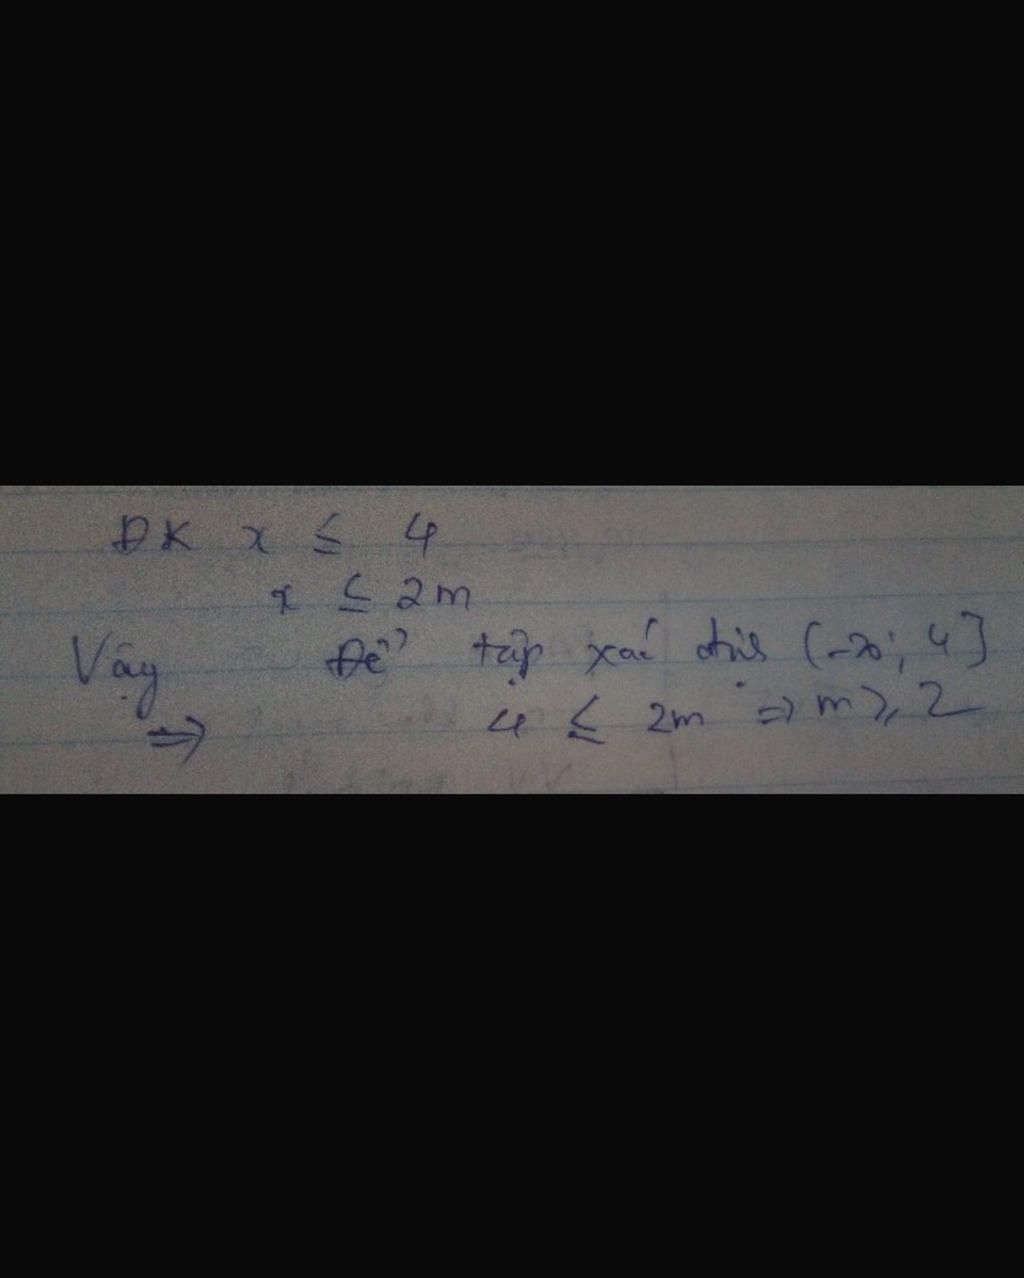 ĐK x ≤ 4
x ≤ 2m
Vậy Để tập xác định (-∞; 4]
⇒ 4 ≤ 2m ⇒ m ≥ 2